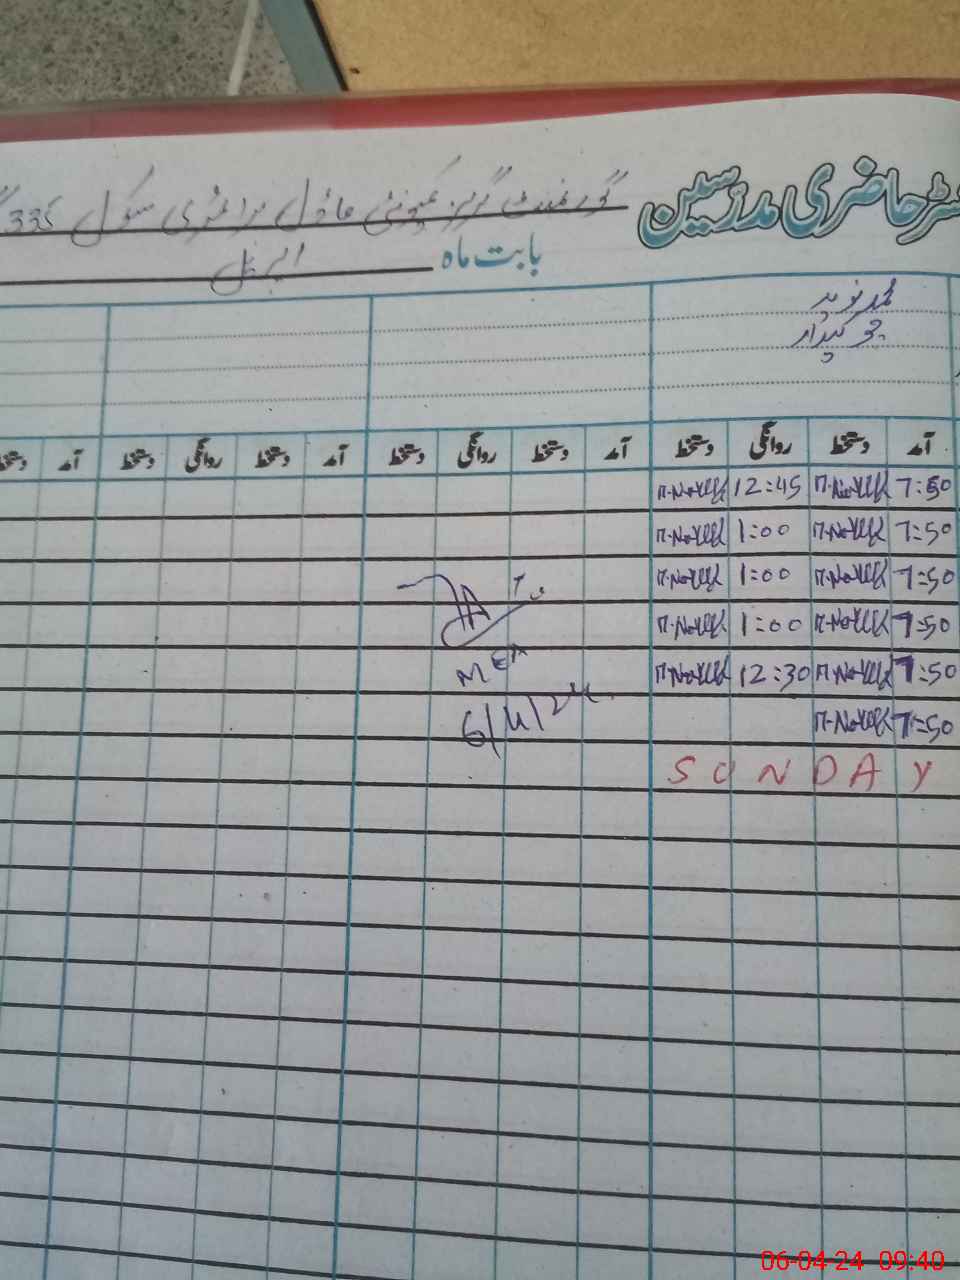 رجسٹر حاضری مدرسین گورنمنٹ گرلز کمیونٹی ماڈل پرائمری سکول 335
بابت ماہ اپریل
محمد نوید
چوکیدار
آمد دستخط روانگی دستخط آمد دستخط روانگی دستخط آمد دستخط روانگی دستخط آمد دستخط
7:50 M.Naveed 12:45 M.Naveed
7:50 M.Naveed 1:00 M.Naveed
7:50 M.Naveed 1:00 M.Naveed
7:50 M.Naveed 1:00 M.Naveed
7:50 M.Naveed 12:30 M.Naveed
7:50 M.Naveed
SUNDAY
MEA
6/4/24
06-04-24 09:40